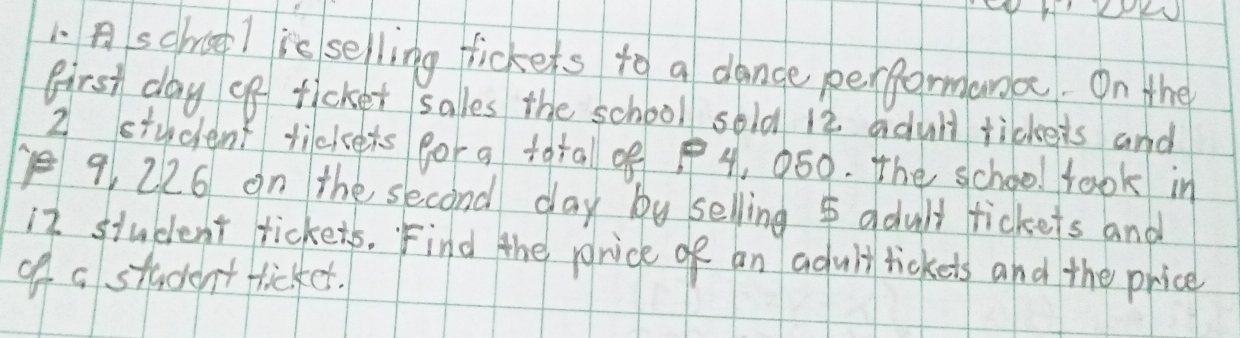 1. A school is selling tickets to a dance performance. On the
first day of ticket sales the school sold 12 adult tickets and
2 student tickets for a total of ₱ 4, 050. The school took in
₱ 9, 226 on the second day by selling 5 adult tickets and
12 student tickets. Find the price of an adult tickets and the price
of a student ticket.